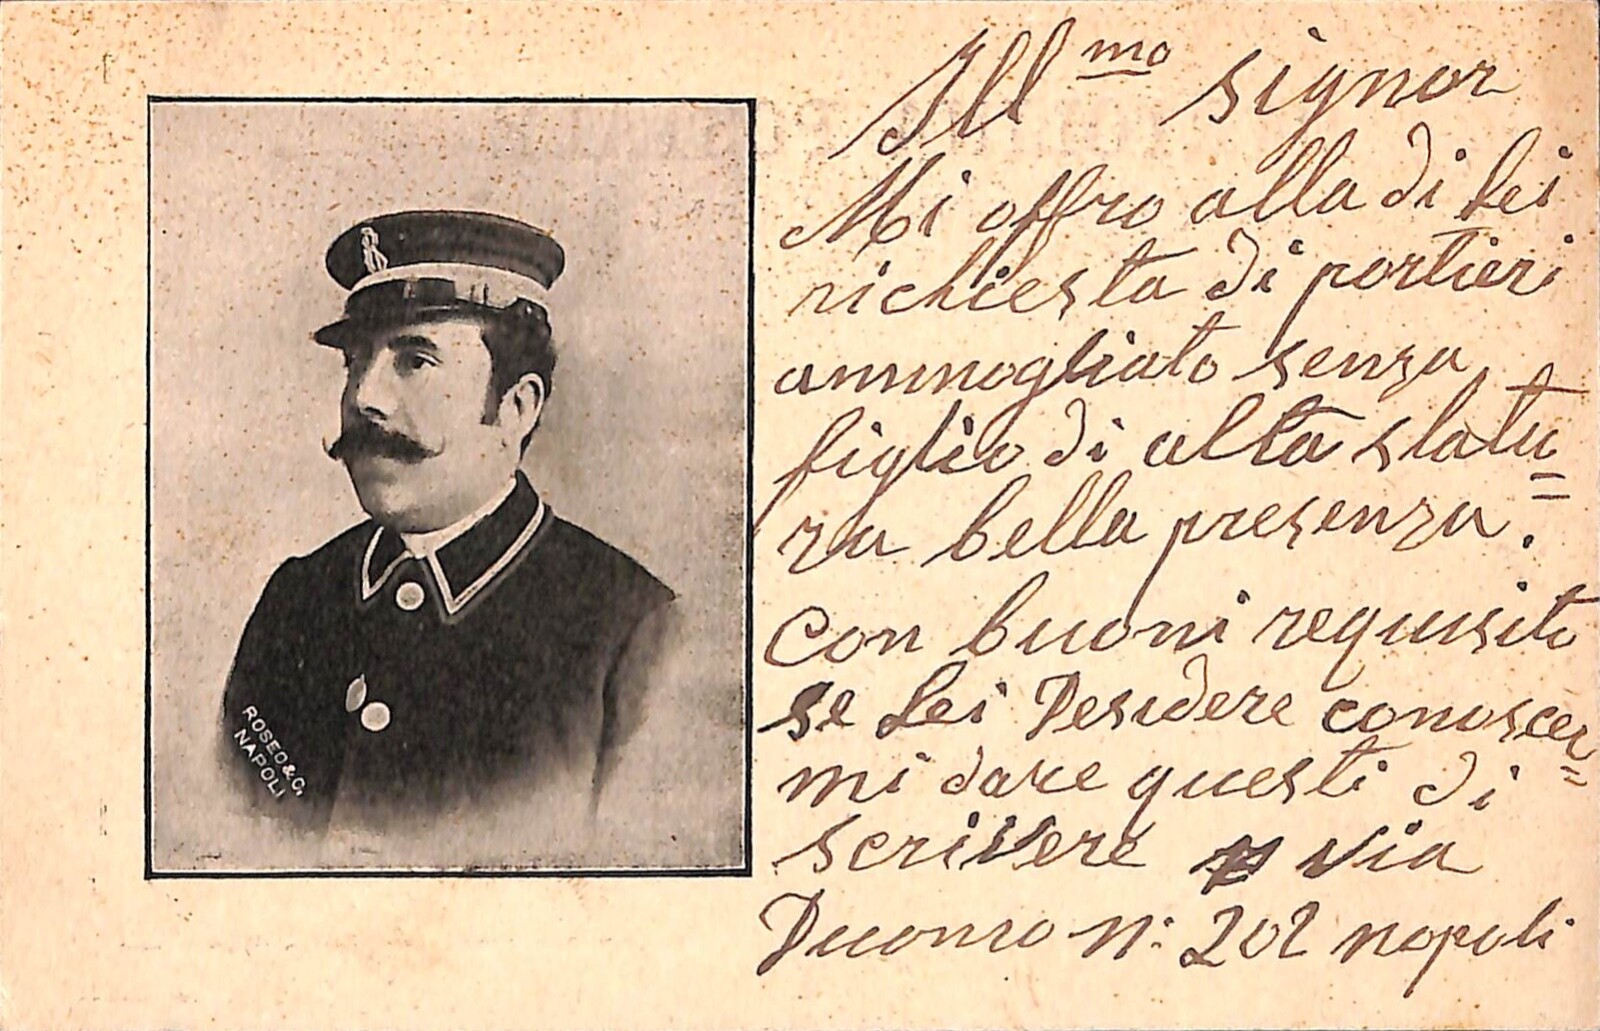 Ill mo signor
Mi offro alla di Lei
richiesta di portieri
ammogliato senza
figlio di alta statu=
ra bella presenza.
Con buoni requisito
se Lei Desidere conoscer=
mi dare questi di
scrivere via
Duomo n: 202 napoli
ROSEO & C.
NAPOLI